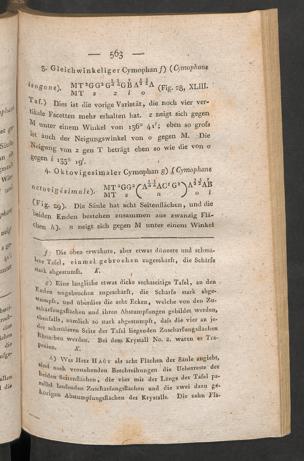 — 563 —
3. Gleichwinkeliger Cymophan f) (Cymophane
isogone). MT²GG²G A GBA A (Fig. 28, XLIII.
MT s z i o
Taf.) Dies ist die vorige Varietät, die noch vier ver-
tikale Facetten mehr erhalten hat. z neigt sich gegen
M unter einem Winkel von 156° 41'; eben so gross
ist auch der Neigungswinkel von o gegen M. Die
Neigung von z gen T beträgt eben so wie die von o
gegen i 133° 19'.
4. Oktovigesimaler Cymophan g) (Cymophane
octovigésimale). MT²GG²
MT s n o i
(Fig. 29). Die Säule hat acht Seitenflächen, und die
beiden Enden bestehen zusammen aus zwanzig Flä-
chen h). n neigt sich gegen M unter einem Winkel
f) Die oben erwähnte, aber etwas dünnere und schma-
lere Tafel, einmal gebrochen zugeschärft, die Schärfe
stark abgestumpft. K.
g) Eine längliche etwas dicke sechsseitige Tafel, an den
Enden ungebrochen zugeschärft, die Schärfe stark abge-
stumpft, und überdies die acht Ecken, welche von den Zu-
schärfungsflächen und ihren Abstumpfungen gebildet werden,
der schmäleren Seite der Tafel liegenden Zuschärfungsflächen
Bei dem Krystall No. 2. waren er
K.
h) Was Herr HAÜY als acht Flächen der Säule angiebt,
sind nach vorstehenden Beschreibungen die Ueberreste der
beiden Seitenflächen, die vier mit der Länge der Tafel pa-
rallel laufenden Zuschärfungsflächen und die zwei dazu ge-
hörigen Abstumpfungsflächen des Krystalls. Die zehn Flä-